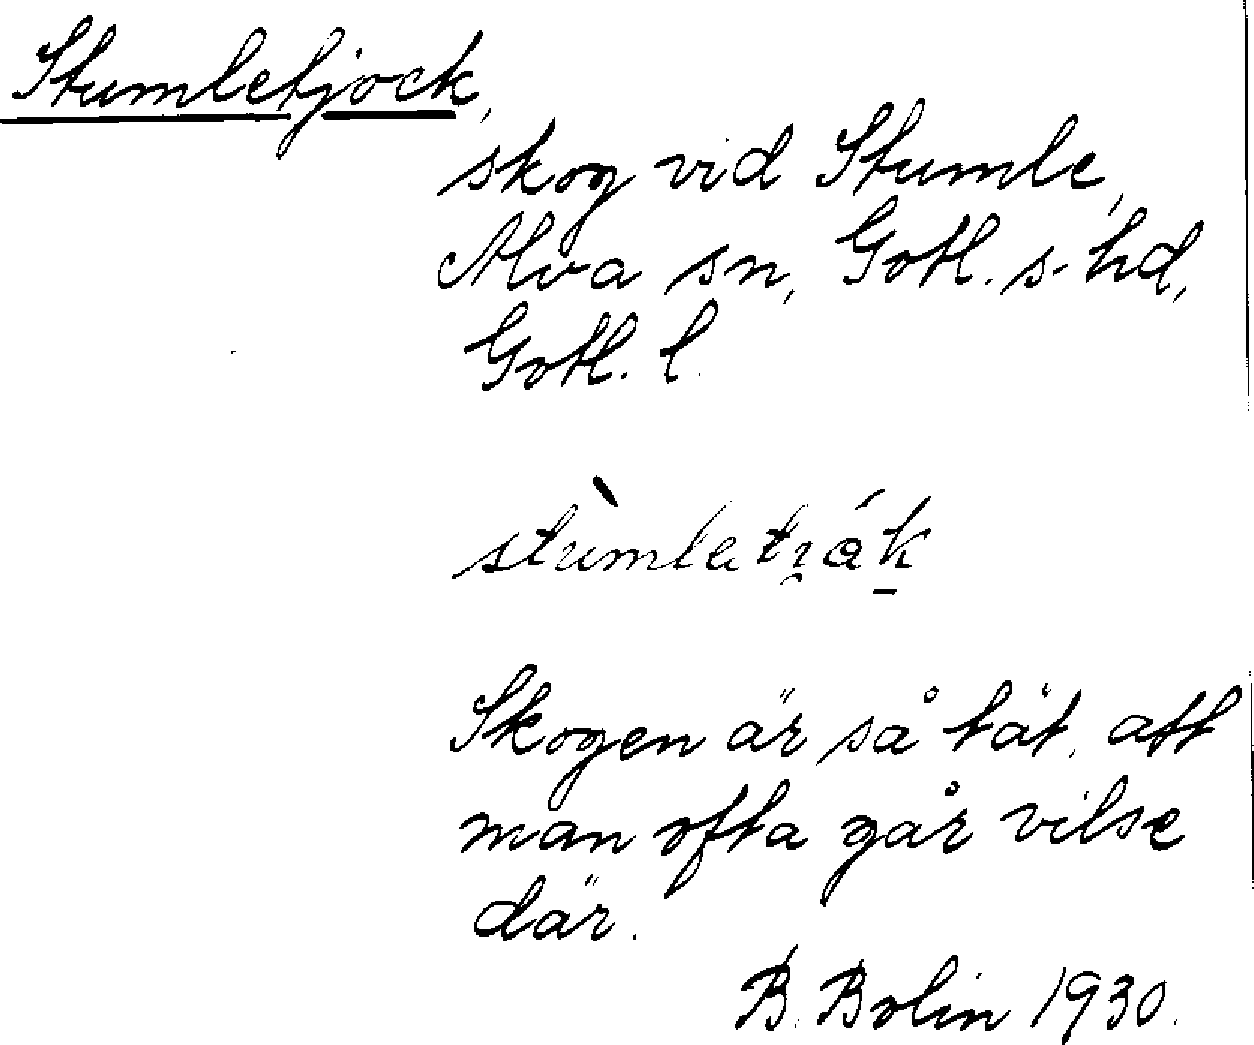 Stumletjock,
skog vid Stumle,
Alva sn, Gotl. s. hd,
Gotl. l.
Skogen är så tät, att
man ofta går vilse
där.
B. Bolin 1930.